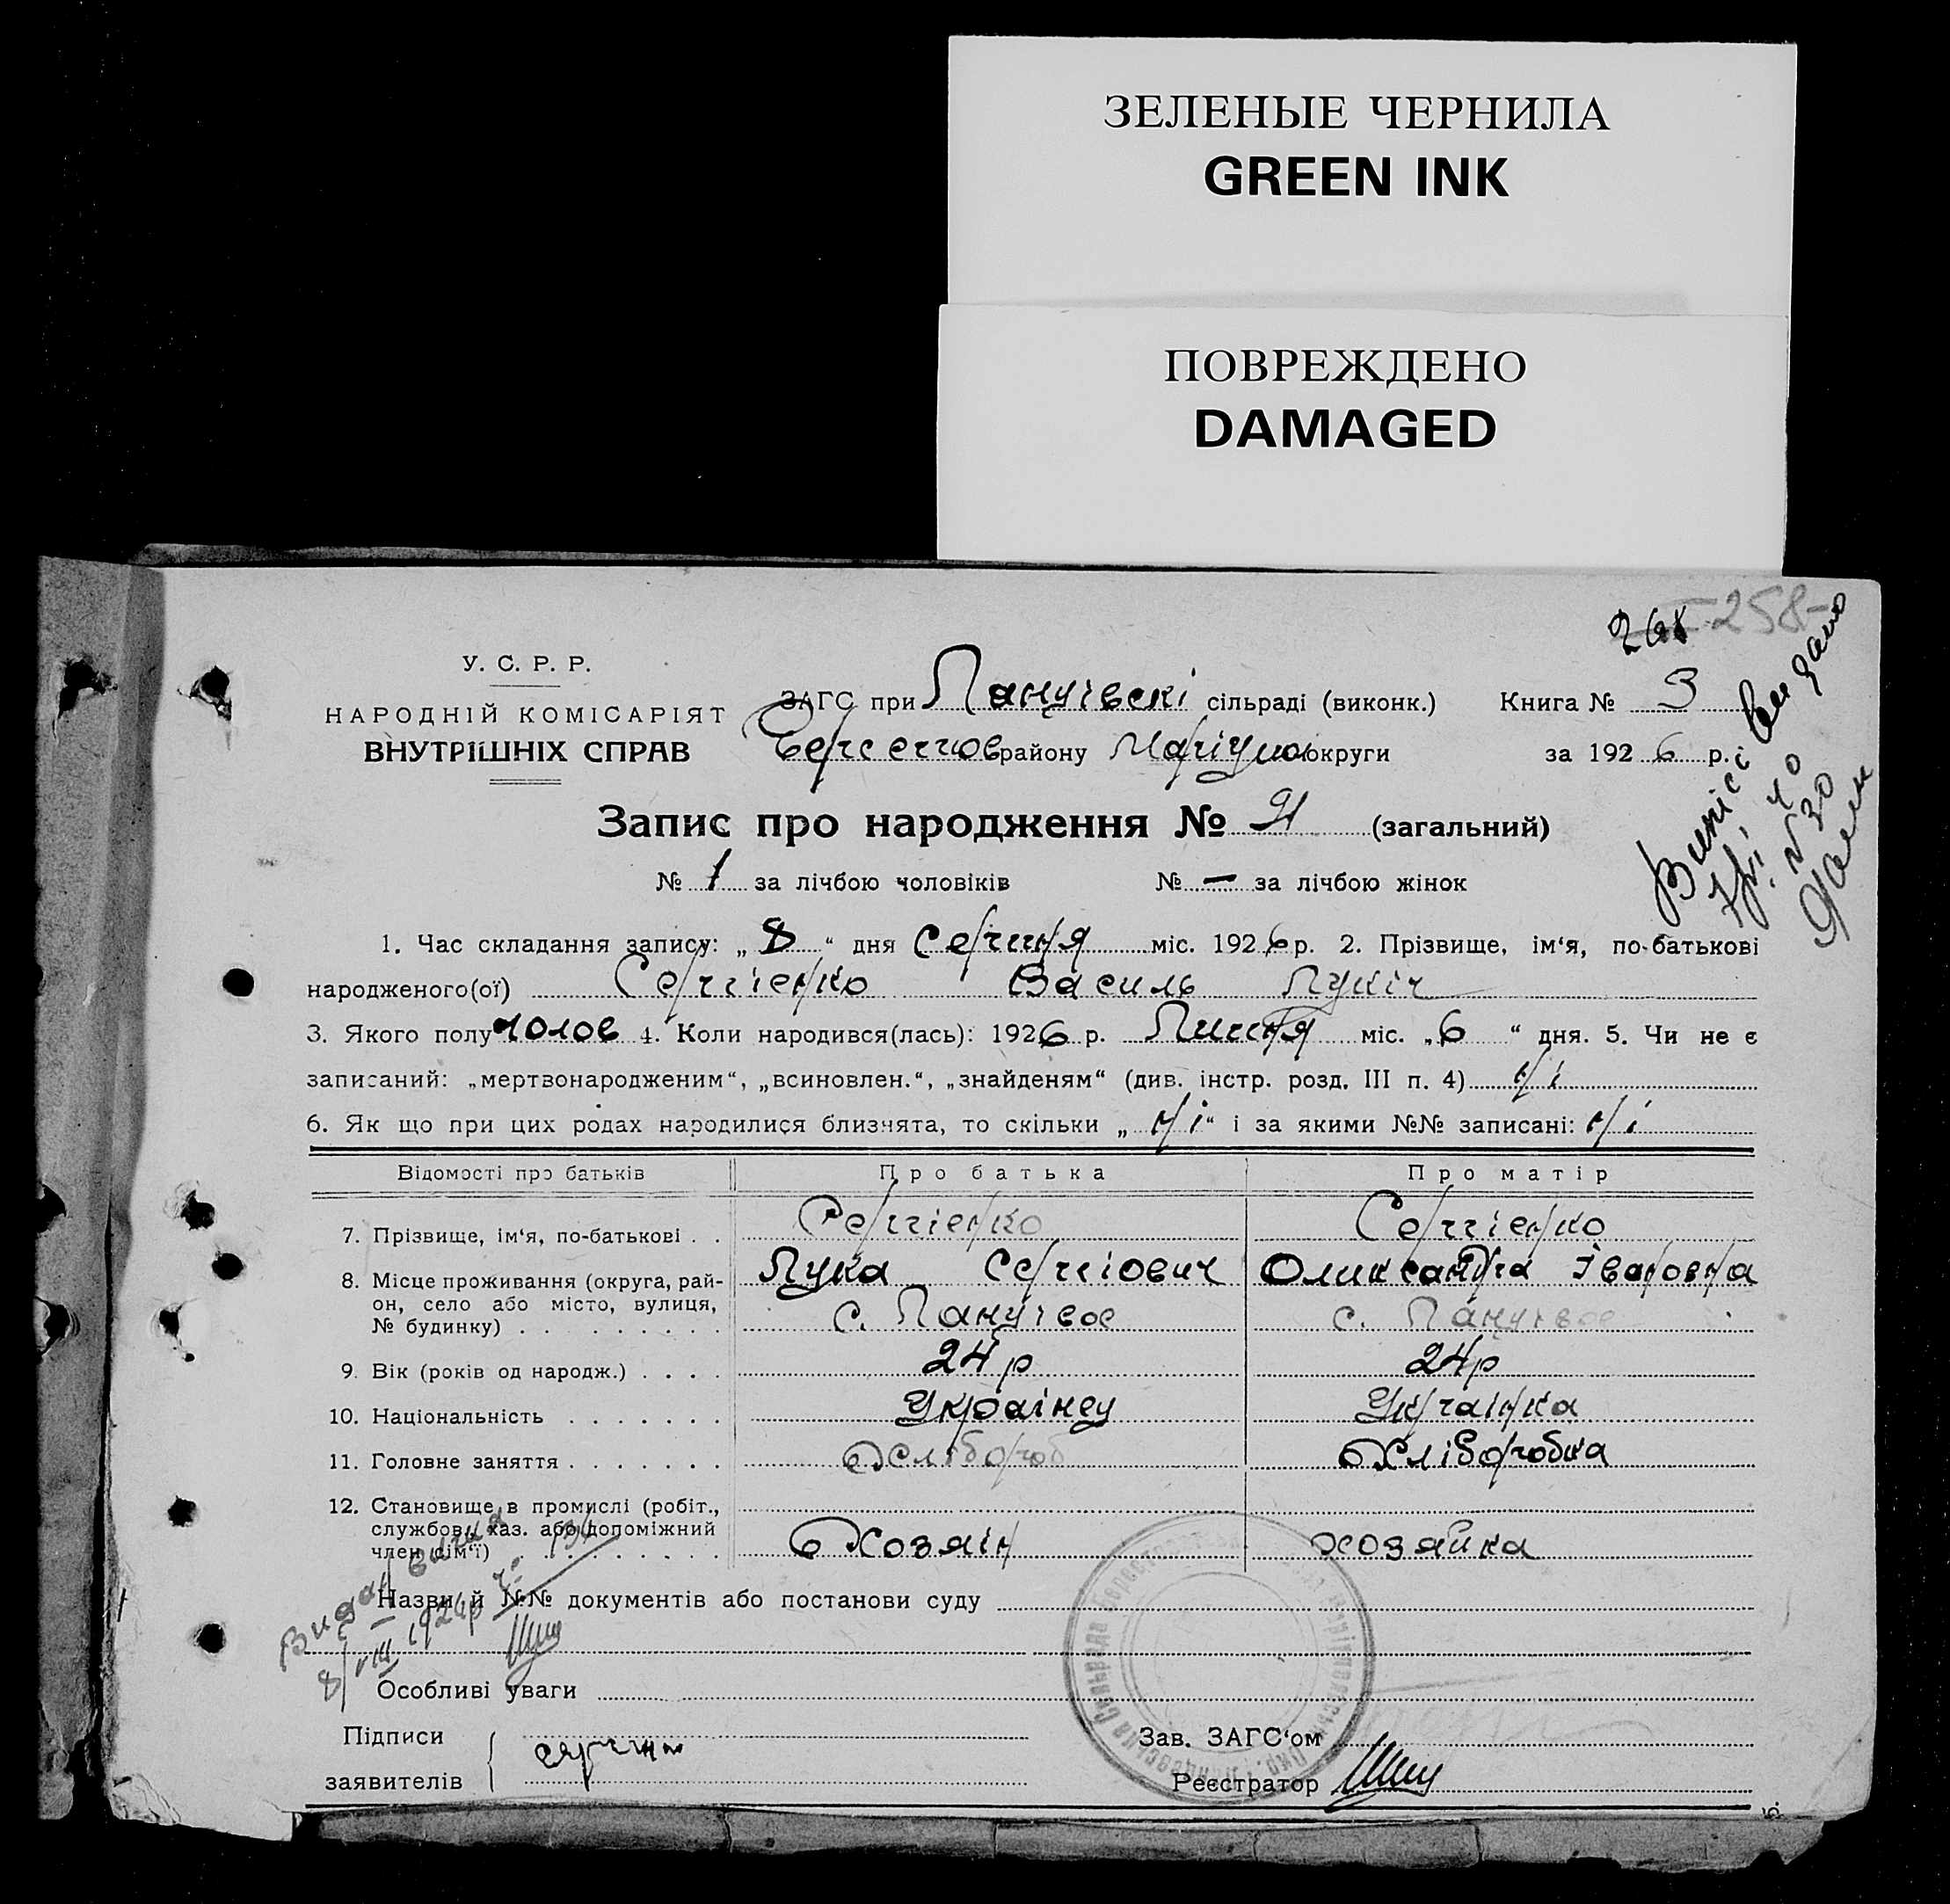 ЗЕЛЕНЫЕ ЧЕРНИЛА
GREEN INK
ПОВРЕЖДЕНО
DAMAGED
268 258
У. С. Р. Р.
НАРОДНІЙ КОМІСАРІЯТ
ВНУТРІШНІХ СПРАВ
ЗАГС при сільраді (виконк.) Книга № 3
району Маріупол округи за 1926 р.
Запис про народження № (загальний)
№ 1 за лічбою чоловіків № — за лічбою жінок
1. Час складання запису: „8“ дня Серпня міс. 1926 р. 2. Прізвище, ім‘я, по-батькові
народженого(ої) Сергієнко Василь Лукіч
3. Якого полу чолов 4. Коли народився(лась): 1926 р. Липня міс. „6“ дня. 5. Чи не є
записаний: „мертвонародженим“, „всиновлен.“, „знайденям“ (див. інстр. розд. III п. 4) Ні
6. Як що при цих родах народилися близнята, то скільки „Ні“ і за якими №№ записані: Ні
Відомості про батьків Про батька Про матір
7. Прізвище, ім‘я, по-батькові . . Сергієнко Сергієнко
Лука Сергіович Олександра Івановна
8. Місце проживання (округа, рай-
он, село або місто, вулиця,
№ будинку) с.  с.
9. Вік (років од народж.) . . . . 24 р 24 р
10. Національність Українец Українка
11. Головне заняття Хлібороб Хліборобка
12. Становище в промислі (робіт.,
службов., хаз. або допоміжний
член сім‘ї) Хозяін хозяйка
Назви й №№ документів або постанови суду
Особливі уваги
Підписи
заявителів
Зав. ЗАГС‘ом
Реєстратор